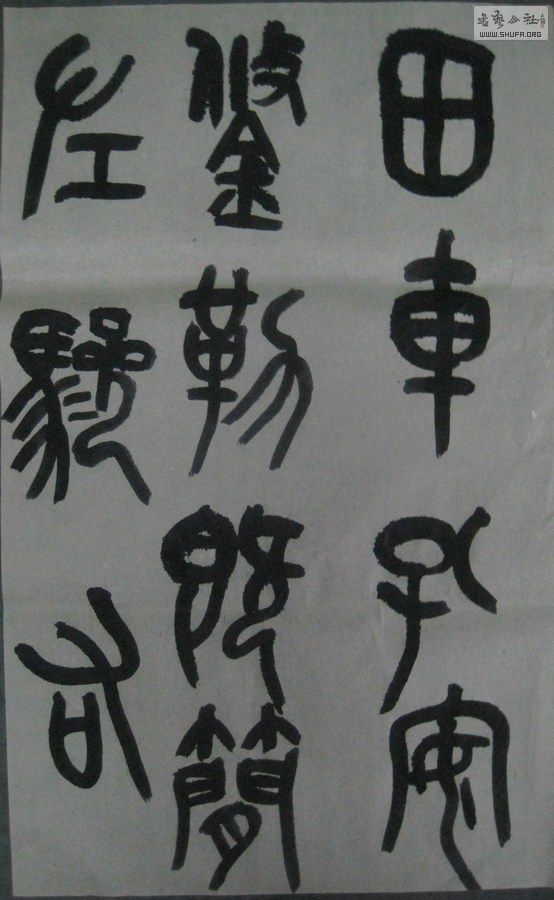 田車孔安
鋚勒既簡
左驂右
书艺公社
WWW.SHUFA.ORG